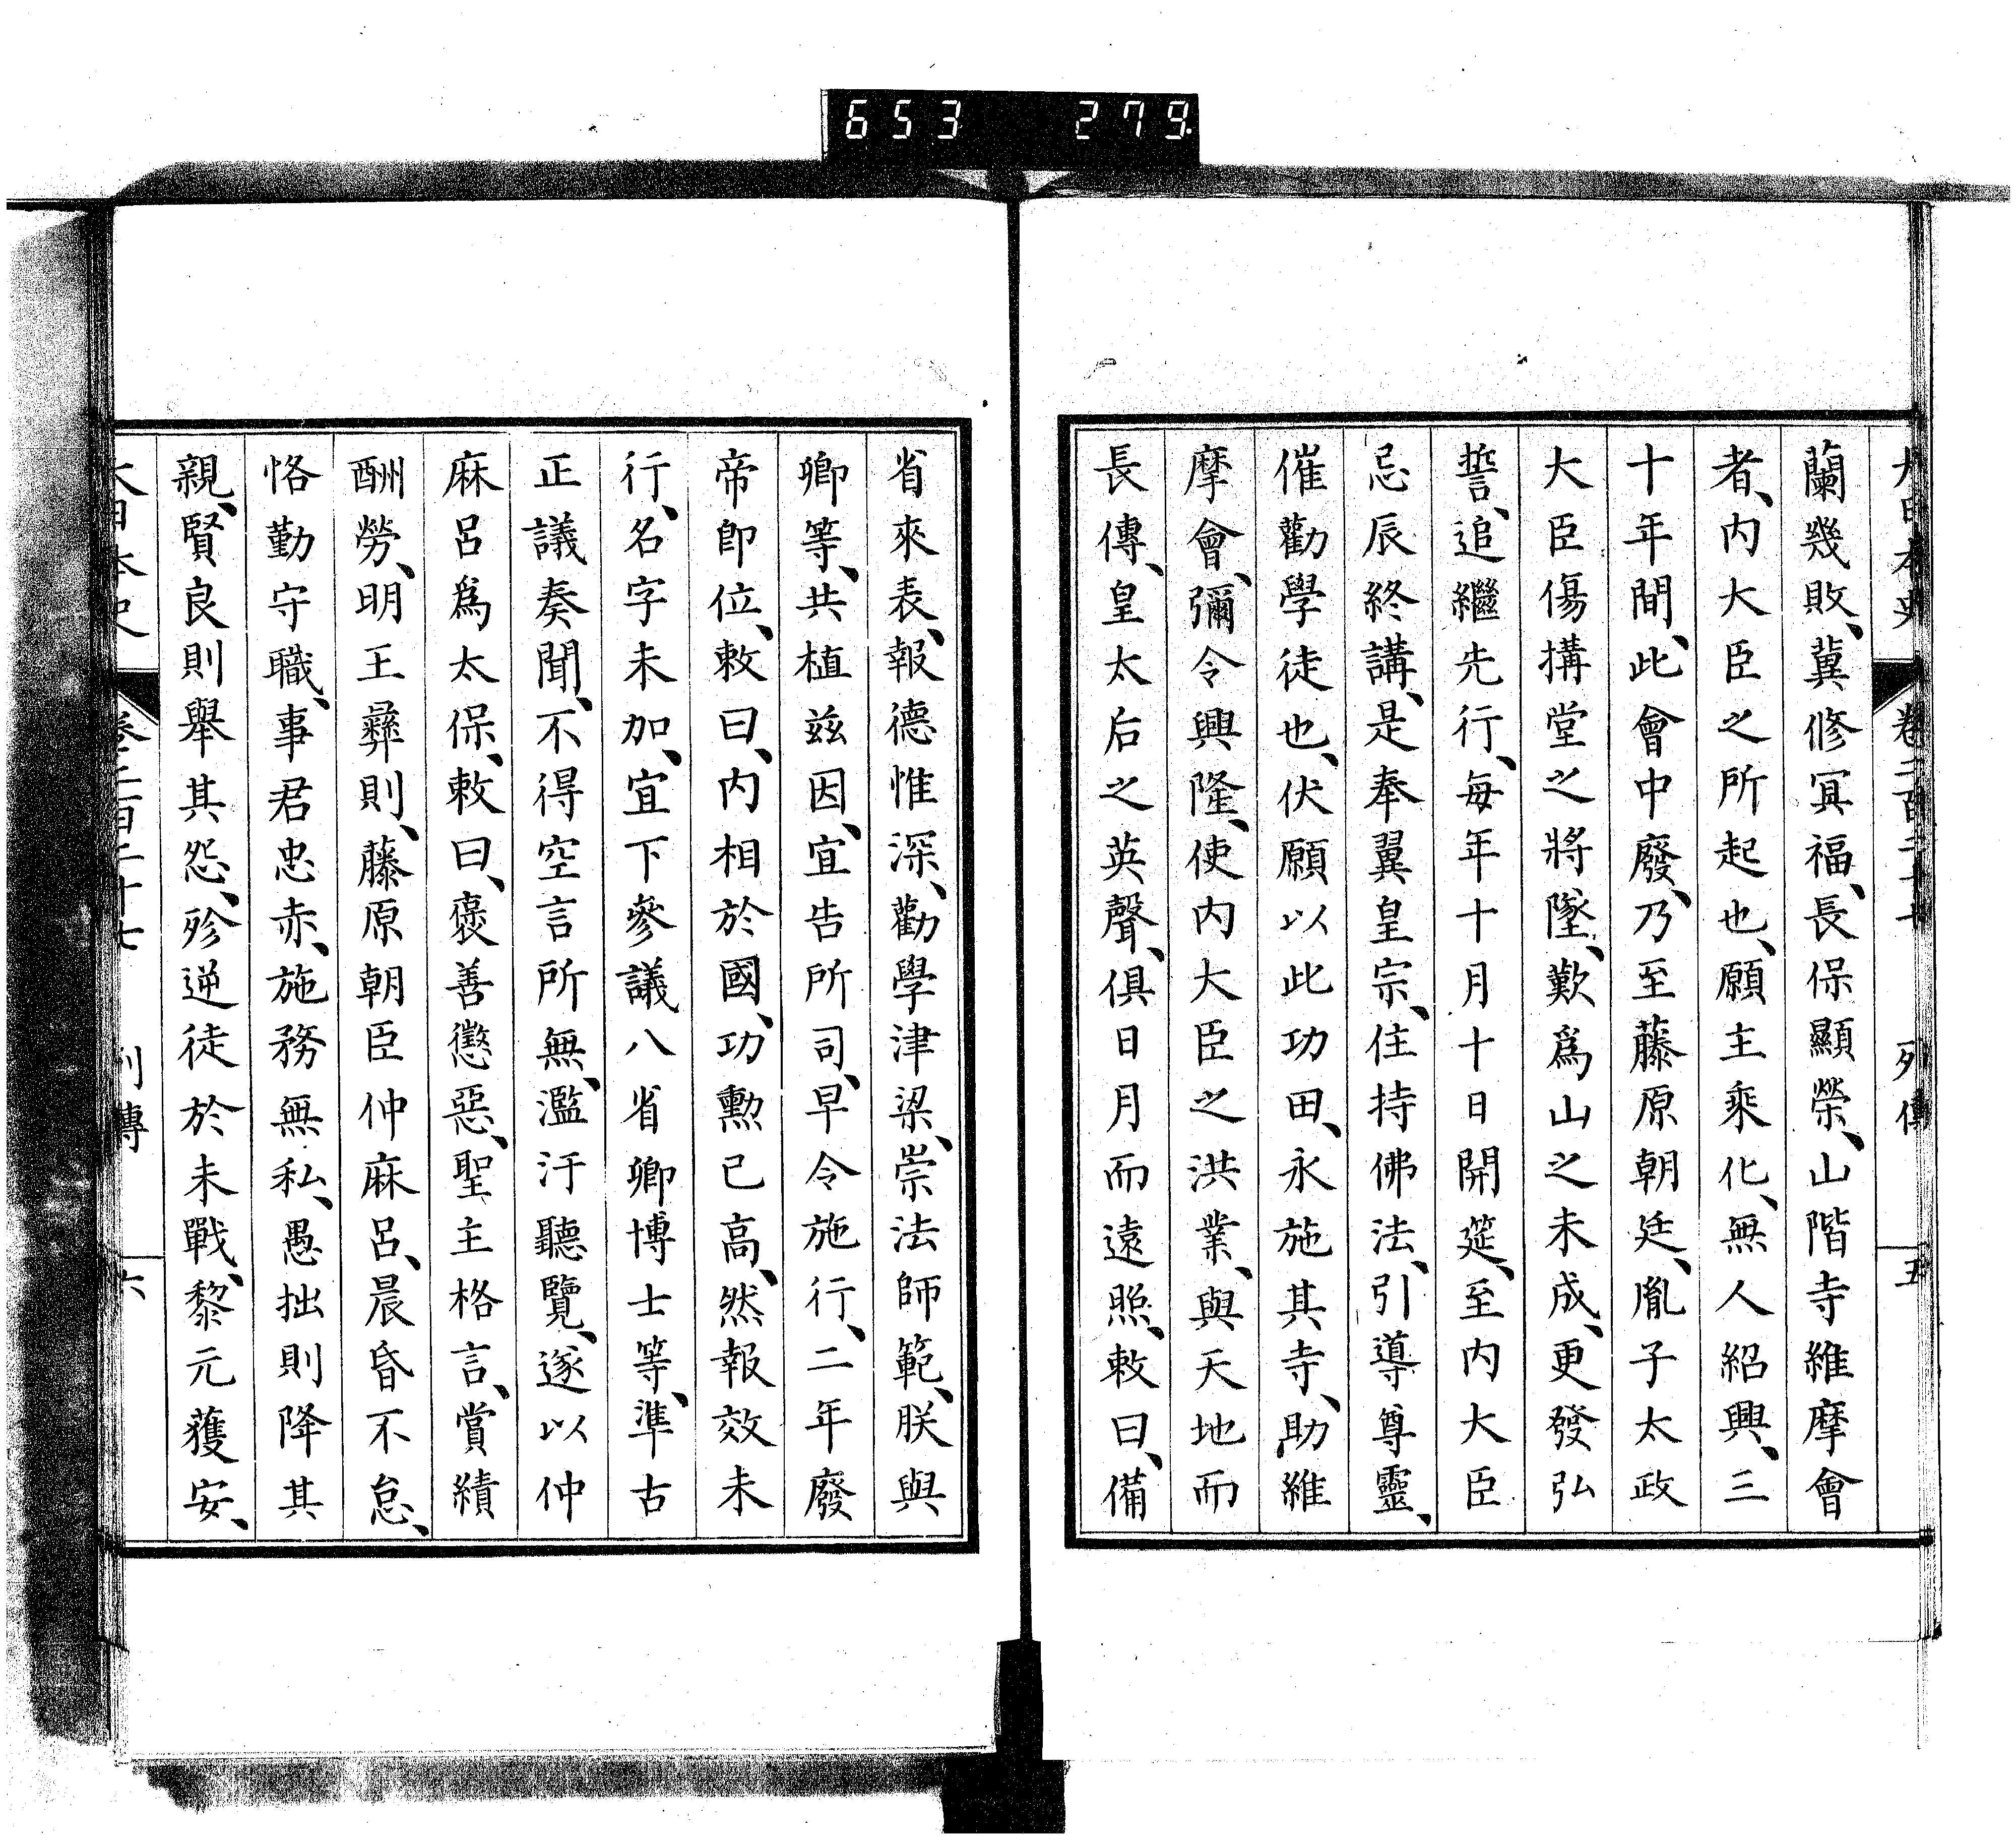 653 279
大日本史 卷二百二十七 列傳 五
蘭幾敗、冀修冥福、長保顯榮、山階寺維摩會
者、内大臣之所起也、願主乘化、無人紹興、三
十年間、此會中廢、乃至藤原朝廷、胤子太政
大臣傷搆堂之將墜、歎爲山之未成、更發弘
誓、追繼先行、每年十月十日開筵、至内大臣
忌辰終講、是奉翼皇宗、住持佛法、引導尊靈、
催勸學徒也、伏願以此功田、永施其寺、助維
摩會、彌令興隆、使内大臣之洪業、與天地而
長傳、皇太后之英聲、俱日月而遠照、敕曰、備
省來表、報德惟深、勸學津梁、崇法師範、朕與
卿等、共植兹因、宜告所司、早令施行、二年廢
帝卽位、敕曰、内相於國、功勳已高、然報效未
行、名字未加、宜下參議八省卿博士等、準古
正議奏聞、不得空言所無、濫汙聽覽、遂以仲
麻呂爲太保、敕曰、褒善懲惡、聖主格言、賞績
酬勞、明王彝則、藤原朝臣仲麻呂、晨昏不怠、
恪勤守職、事君忠赤、施務無私、愚拙則降其
親、賢良則舉其怨、殄逆徒於未戰、黎元獲安、
大日本史 卷二百二十七 列傳 六